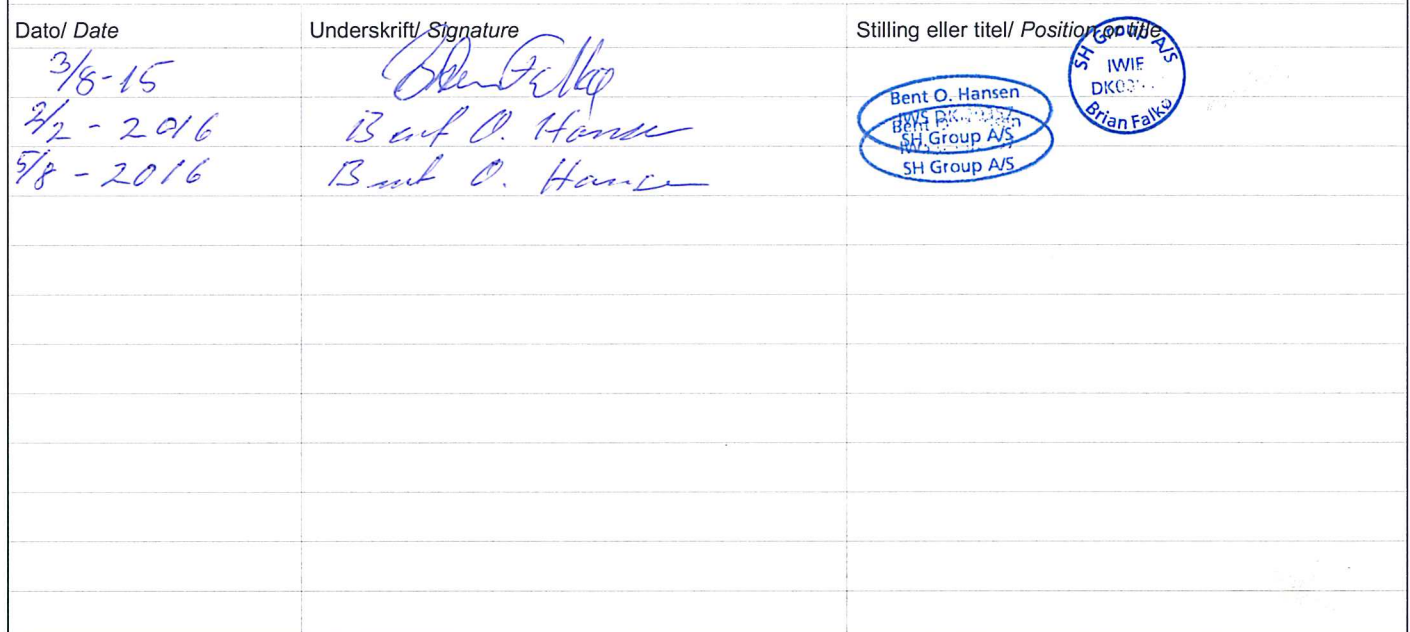 Dato/ Date Underskrift/ Signature Stilling eller titel/ Position or title
3/8-15 Brian Falkø SH Group A/S
IWIE
Brian Falkø
2/2 - 2016 Bent O. Hansen Bent O. Hansen
IWS DK
SH Group A/S
5/8 - 2016 Bent O. Hansen
SH Group A/S